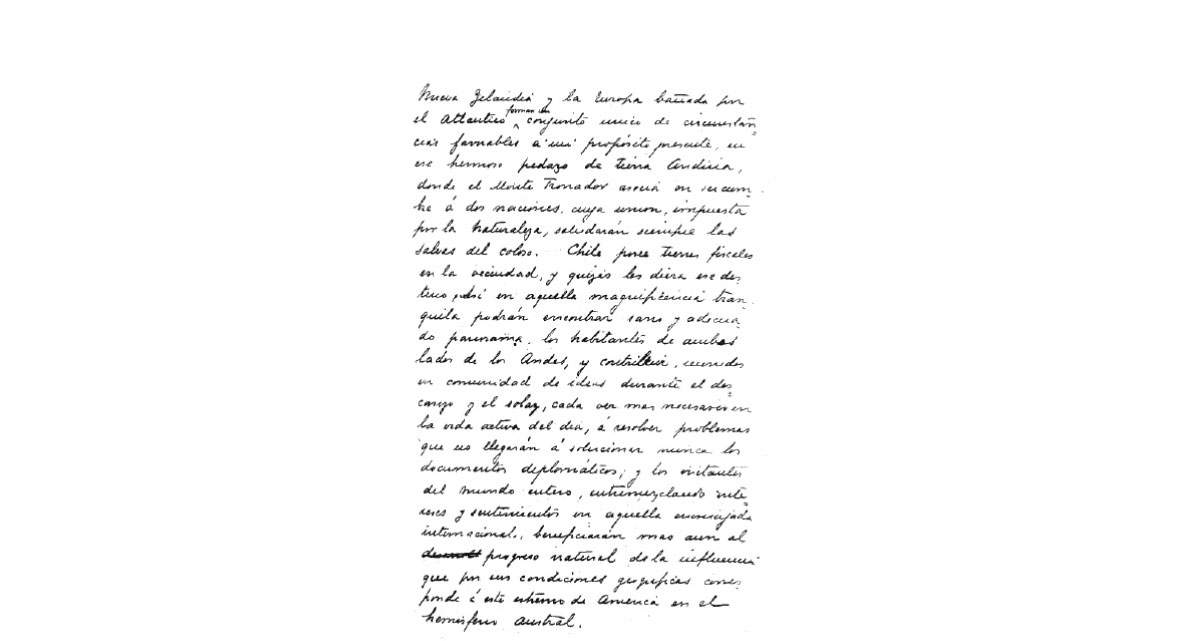 Nueva Zelandia y la Europa bañada por
el Atlantico forman un conjunto unico de circunstan=
cias favorables á mi propósito presente, en
ese hermoso pedazo de tierra Andina,
donde el Monte Tronador asocia en su cum-
bre á dos naciones, cuya union, impuesta
por la Naturaleza, saludarán siempre las
salvas del coloso. Chile posee tierras fiscales
en la vecindad, y quizás les diera ese des=
tino. Asi en aquella magnificencia tran-
quila podrán encontrar sano y adecua-
do panorama, los habitantes de ambos
lados de los Andes, y contribuir, unidos
en comunidad de ideas durante el des=
canso y el solaz, cada vez mas necesarios en
la vida activa del dia, á resolver problemas
que no llegarán á solucionar nunca los
documentos diplomáticos; y los visitantes
del mundo entero, entremezclando inte=
reses y sentimientos en aquella encrucijada
internacional, beneficiarán mas aun al
progreso natural de la influencia
que por sus condiciones geograficas corres
ponde á este estremo de America en el
hemisferio austral.